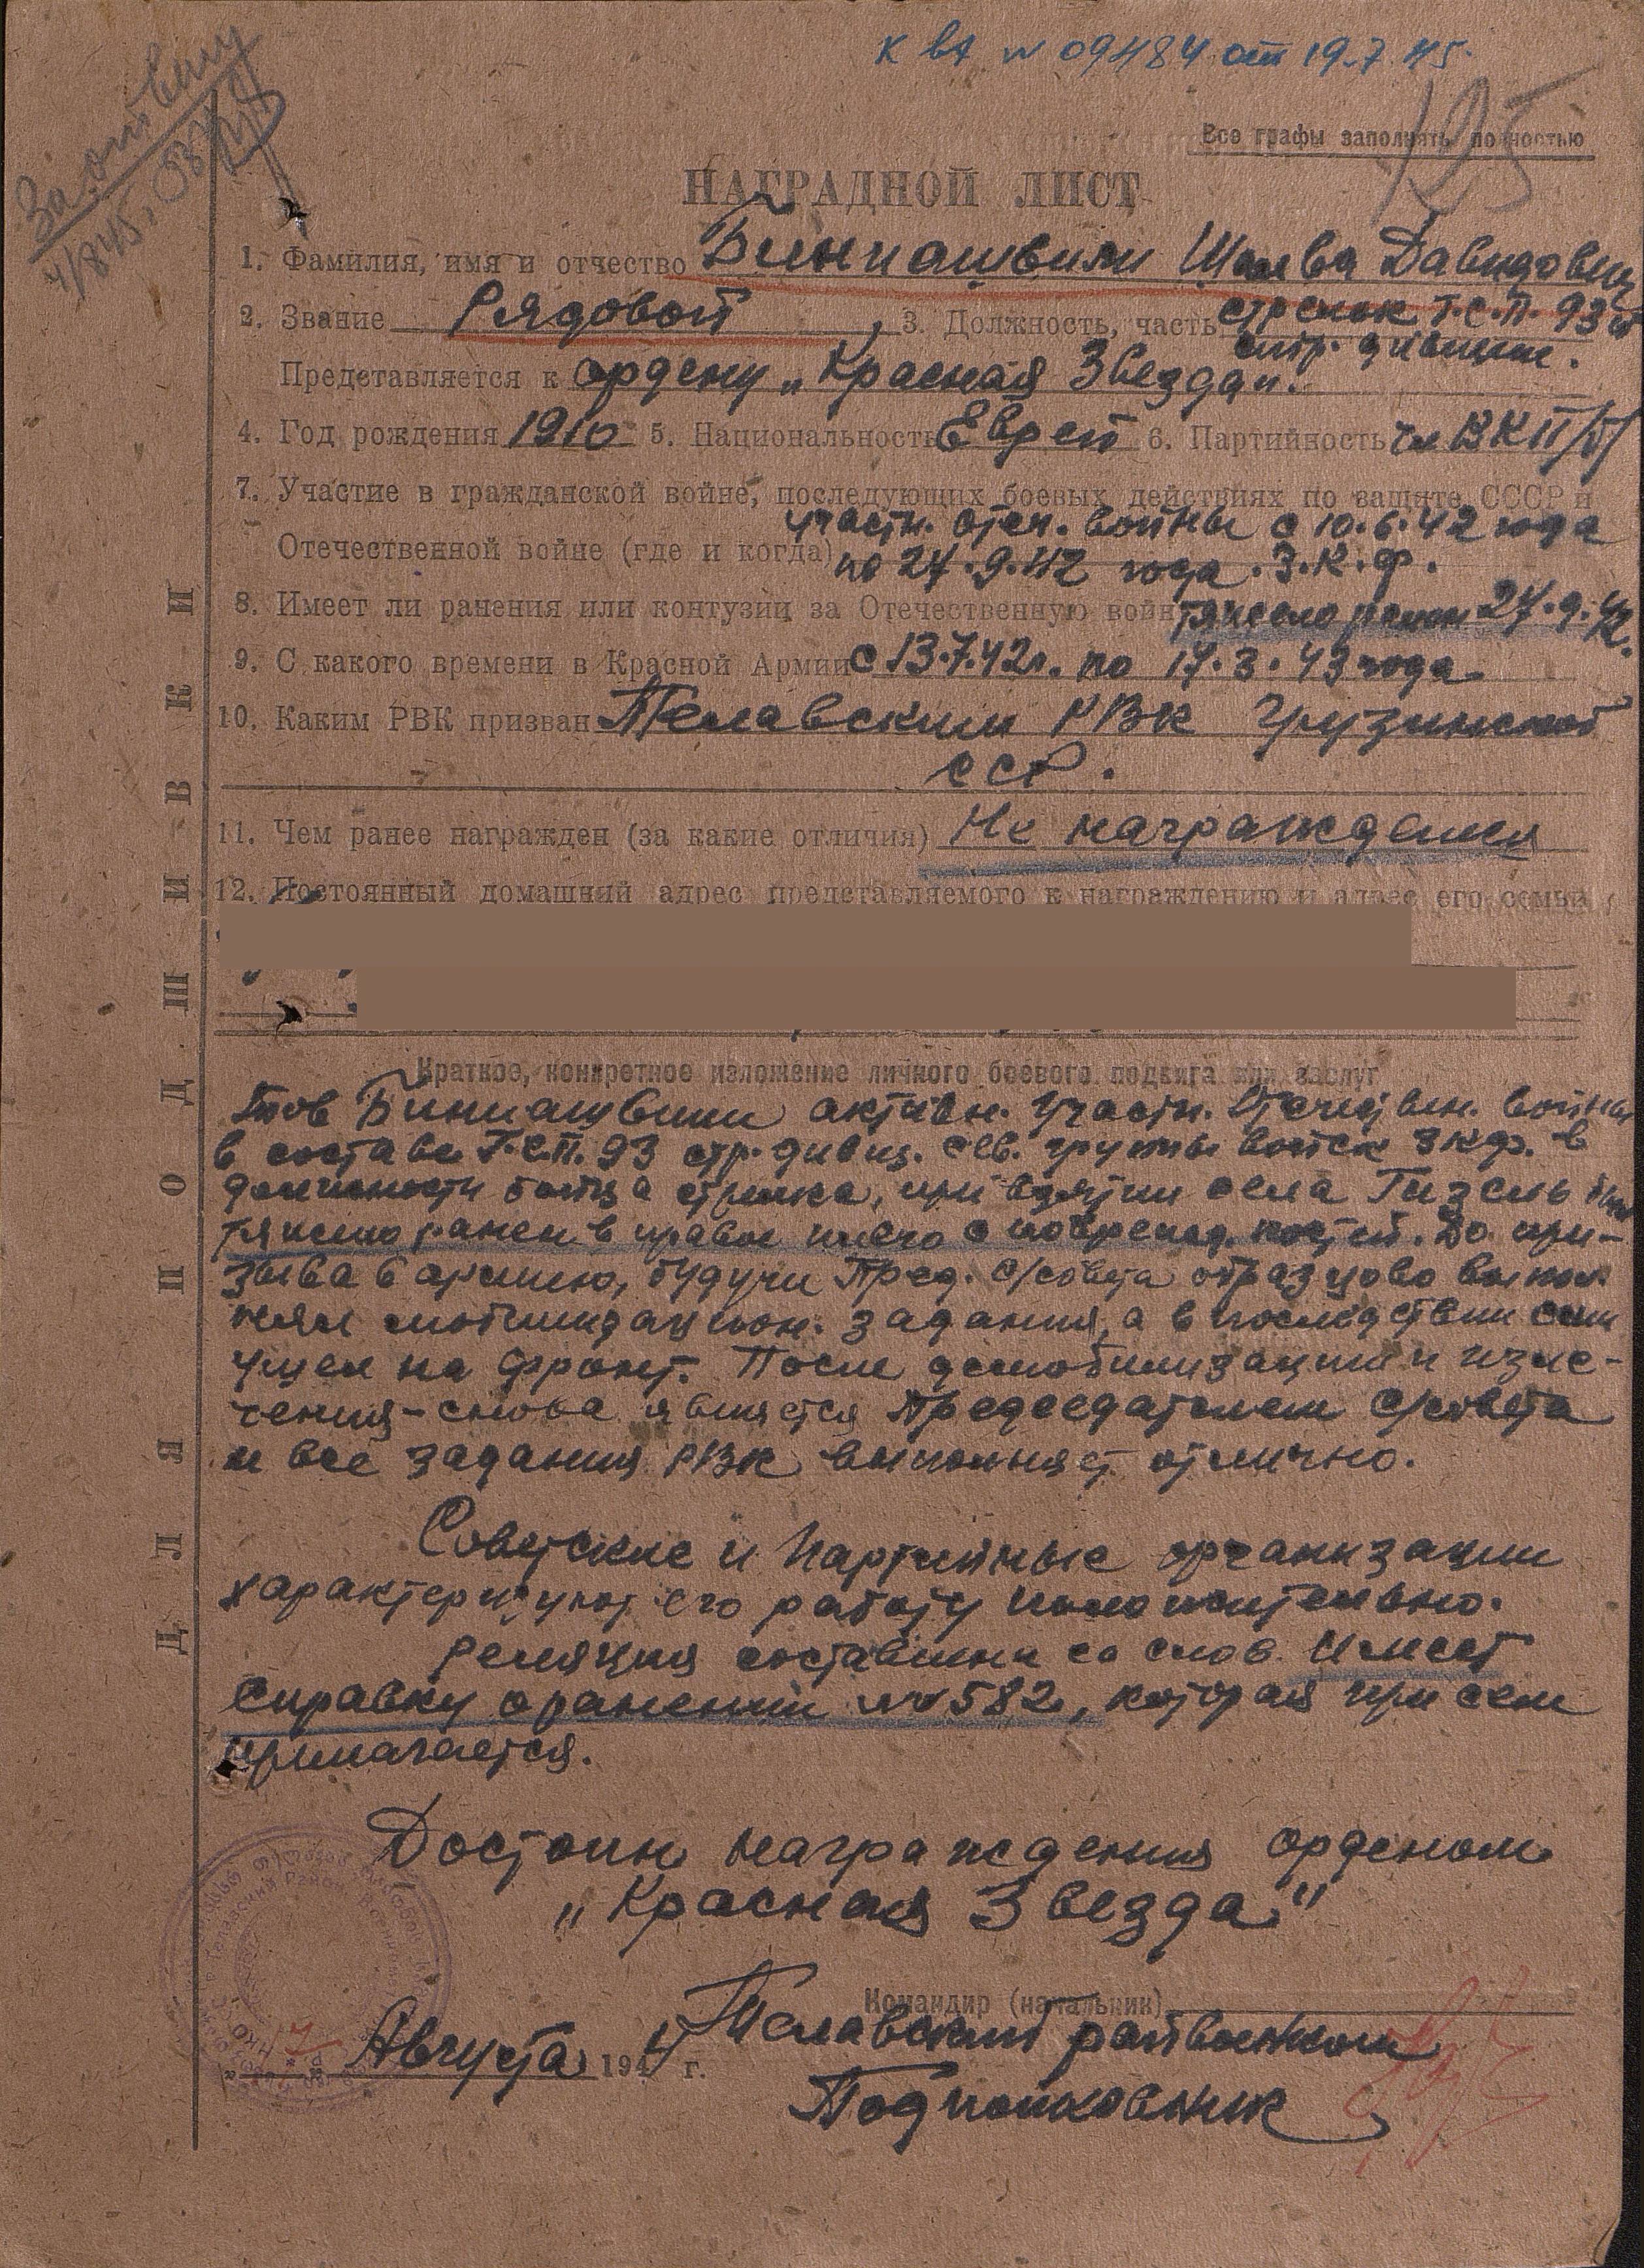 К вх № 09484 от 19.7.45.
За отвагу
195
Все графы заполнять полностью
НАГРАДНОЙ ЛИСТ
1. Фамилия, имя и отчество Биниашвили Шалва Давидович
2. Звание Рядовой, 3. Должность, часть стрелок Г.С.П. 93й
стр. дивизии.
Представляется к ордену „Красная Звезда".
4. Год рождения 1910 5. Национальность Еврей 6. Партийность чл ВКП/б/
7. Участие в гражданской войне, последующих боевых действиях по защите СССР и
участн. отеч. войны с 10.6.42 года
Отечественной войне (где и когда) по 27.9.42 года. З.К.Ф.
8. Имеет ли ранения или контузии за Отечественную войну тяжело ранен 27.9.42.
9. С какого времени в Красной Армии с 13.7.42 г. по 17.3.43 года
10. Каким РВК призван Телавским РВК Грузинской
ССР.
11. Чем ранее награжден (за какие отличия) Не награждался
12. Постоянный домашний адрес представляемого к награждению и адрес его семьи
ДЛЯ ПОДШИВКИ
Краткое, конкретное изложение личного боевого подвига или заслуг
Тов Биниашвили активн. участн. Отечествен. войны
в составе Г.С.П. 93 стр. дивиз. сев. группы войск ЗКФ. в
должности бойца стрелка, при взятии села Гизель был
тяжело ранен в правое плечо с поврежд. костей. До при-
зыва в армию, будучи Пред. с/совета образцово выпол
нял мобилизацион. задания, а в последствии сам
ушел на фронт. После демобилизации и изле-
чения - снова является Председателем с/совета
и все задания РВК выполняет отлично.
Советские и Партийные организации
характеризуют его работу положительно.
Реляция составлена со слов. Имеет
справку о ранении № 582, которая при сем
прилагается.
Достоин награждения орденом
„Красная Звезда"
Командир (начальник)
Телавский райвоенком
Августа 1944 г.
Подполковник